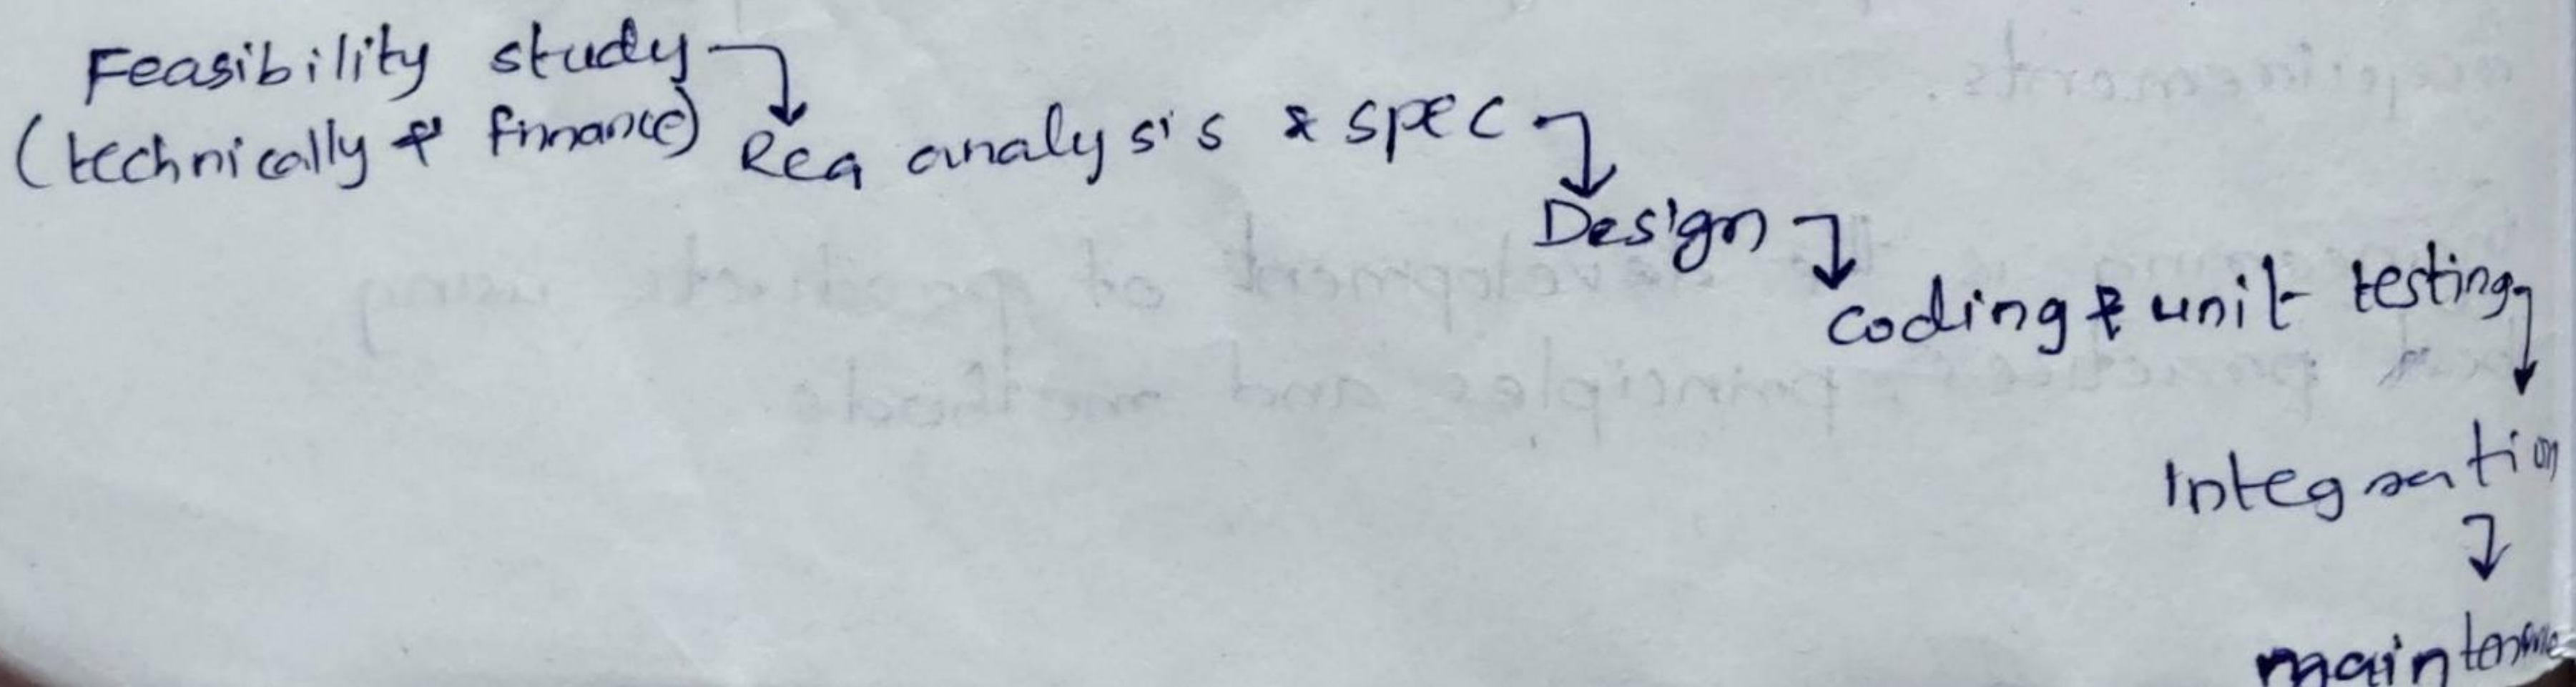 Feasibility study
(technically & finance)
Req analysis & spec
Design
coding & unit testing
Integration
maintenance